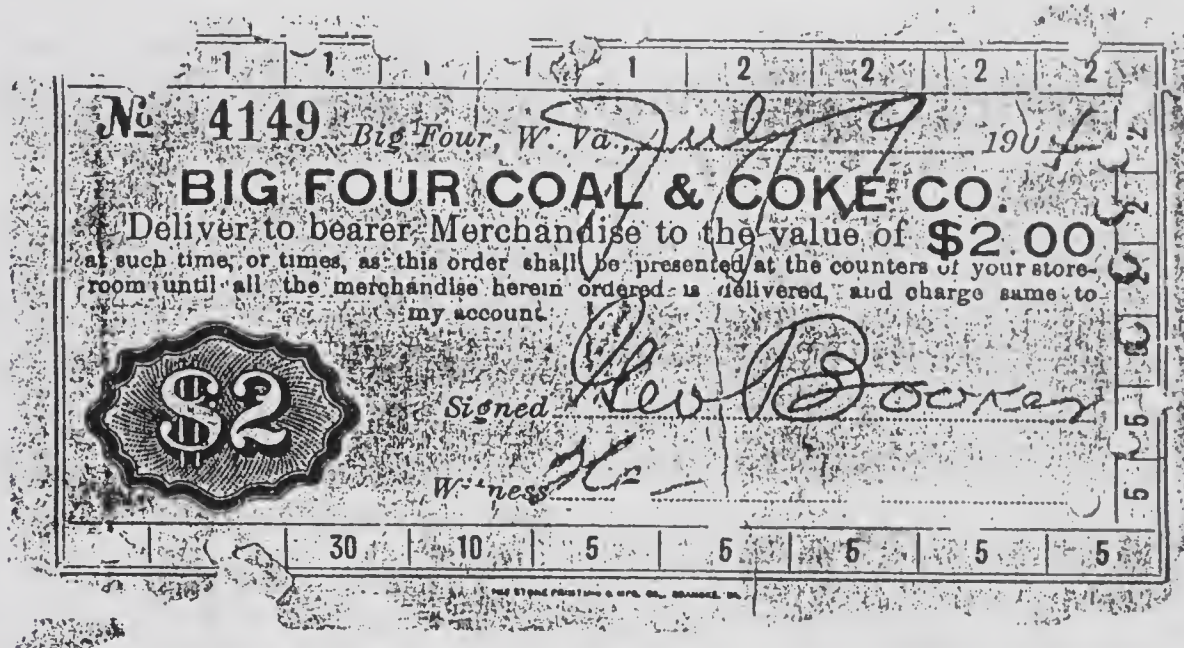 1 1 1 1 1 2 2 2 2
No 4149 Big Four, W. Va., July 9 1904
BIG FOUR COAL & COKE CO.
Deliver to bearer Merchandise to the value of $2.00
at such time, or times, as this order shall be presented at the counters of your store-
room until all the merchandise herein ordered is delivered, and charge same to
my account.
$2
Signed Geo
Witness
2 2 2 5 5 5
30 10 5 5 5 5 5
THE STONE PRINTING & MFG. CO., ROANOKE, VA.